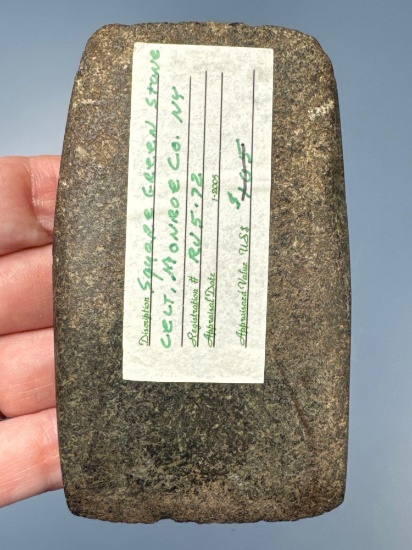 Disruption SQUARE GREEN STONE
CELT, MONROE CO. NY
Registration # RU 5.72
Appraisal Date 1-2005
Appraised Value US$ $105